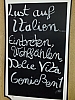 Lust auf
Italien...
Eintreten,
Wohlfühlen
Dolce Vita
Genießen!